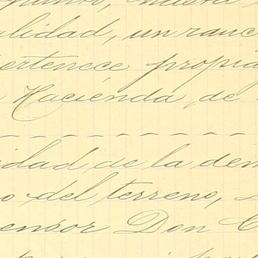 alidad, un ranc
ertenece propia
Hacienda, de
idad de la den
o del terreno,
ensor Don C